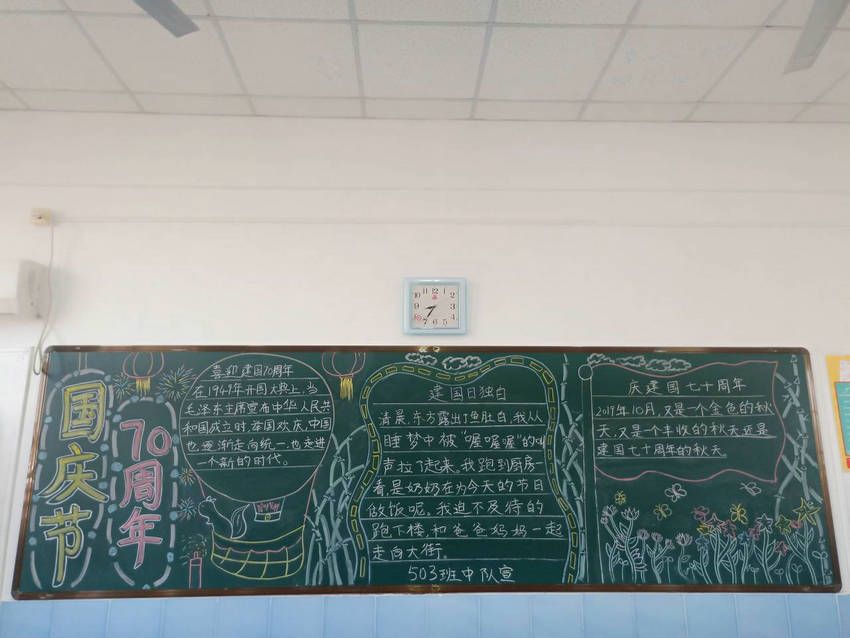 国庆节
70周年
喜迎建国70周年
在1949年开国大典上,当
毛泽东主席宣布中华人民共
和国成立时,举国欢庆,中国
也逐渐走向统一,也走进
一个新的时代。
建国日独白
清晨,东方露出了鱼肚白,我从
睡梦中被“喔喔喔”的叫
声拉了起来。我跑到厨房一
看是奶奶在为今天的节日
做饭呢。我迫不及待的
跑下楼,和爸爸妈妈一起
走向大街。
503班中队宣
庆建国七十周年
2019年10月,又是一个金色的秋
天,又是一个丰收的秋天还是
建国七十周年的秋天。
12
1
2
3
4
5
6
7
8
9
10
11